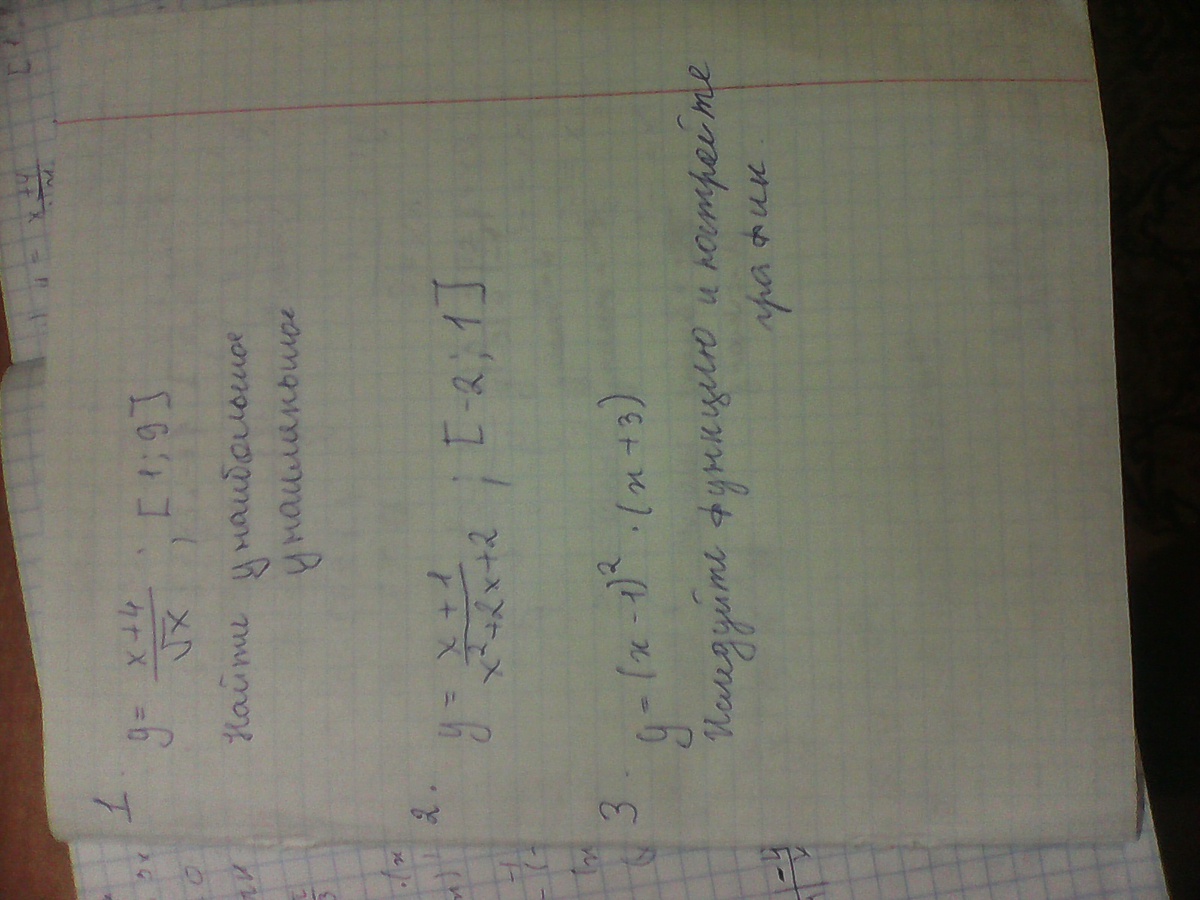 1.
y = (x+4)/√x ; [1;9]
Найти y наибольшое
y наименьшое
2.
y = (x+1)/(x²+2x+2) ; [-2;1]
3.
y = (x-1)² · (x+3)
Исследуйте функцию и постройте
график.